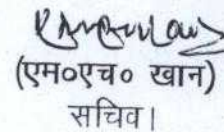 (एम०एच० खान)
सचिव।